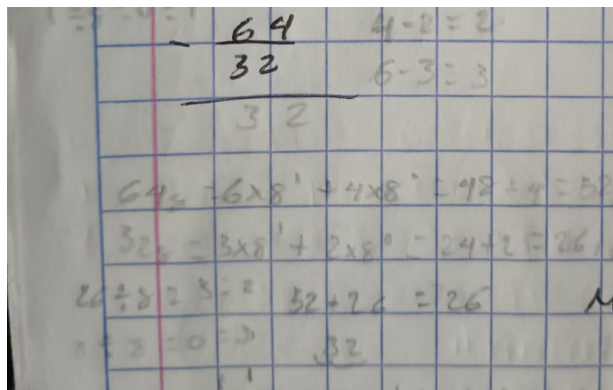 - 64 4-2=2
32 6-3=3
32
64₈ = 6x8¹ + 4x8⁰ = 48+4 = 52
32₈ = 3x8¹ + 2x8⁰ = 24+2 = 26
26 ÷ 8 = 3 = 2 52+26 = 26
÷ 8 = 0 = 3
32